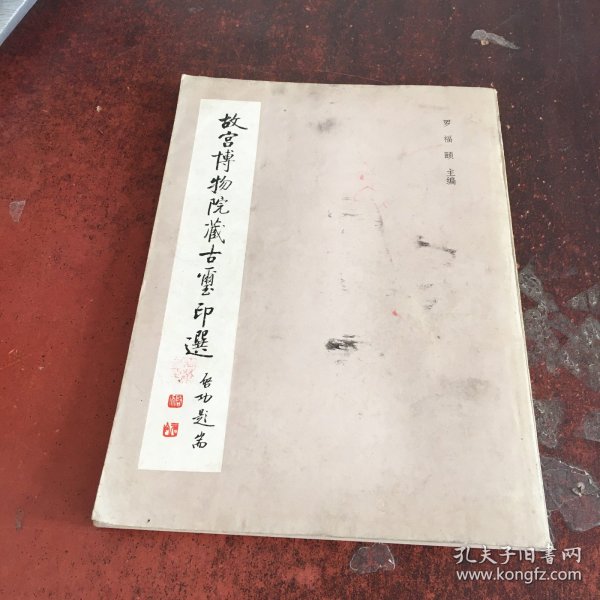 故宫博物院藏古璽印選
啓功題耑
罗福頤 主编
孔夫子旧書网
www.kongfz.com